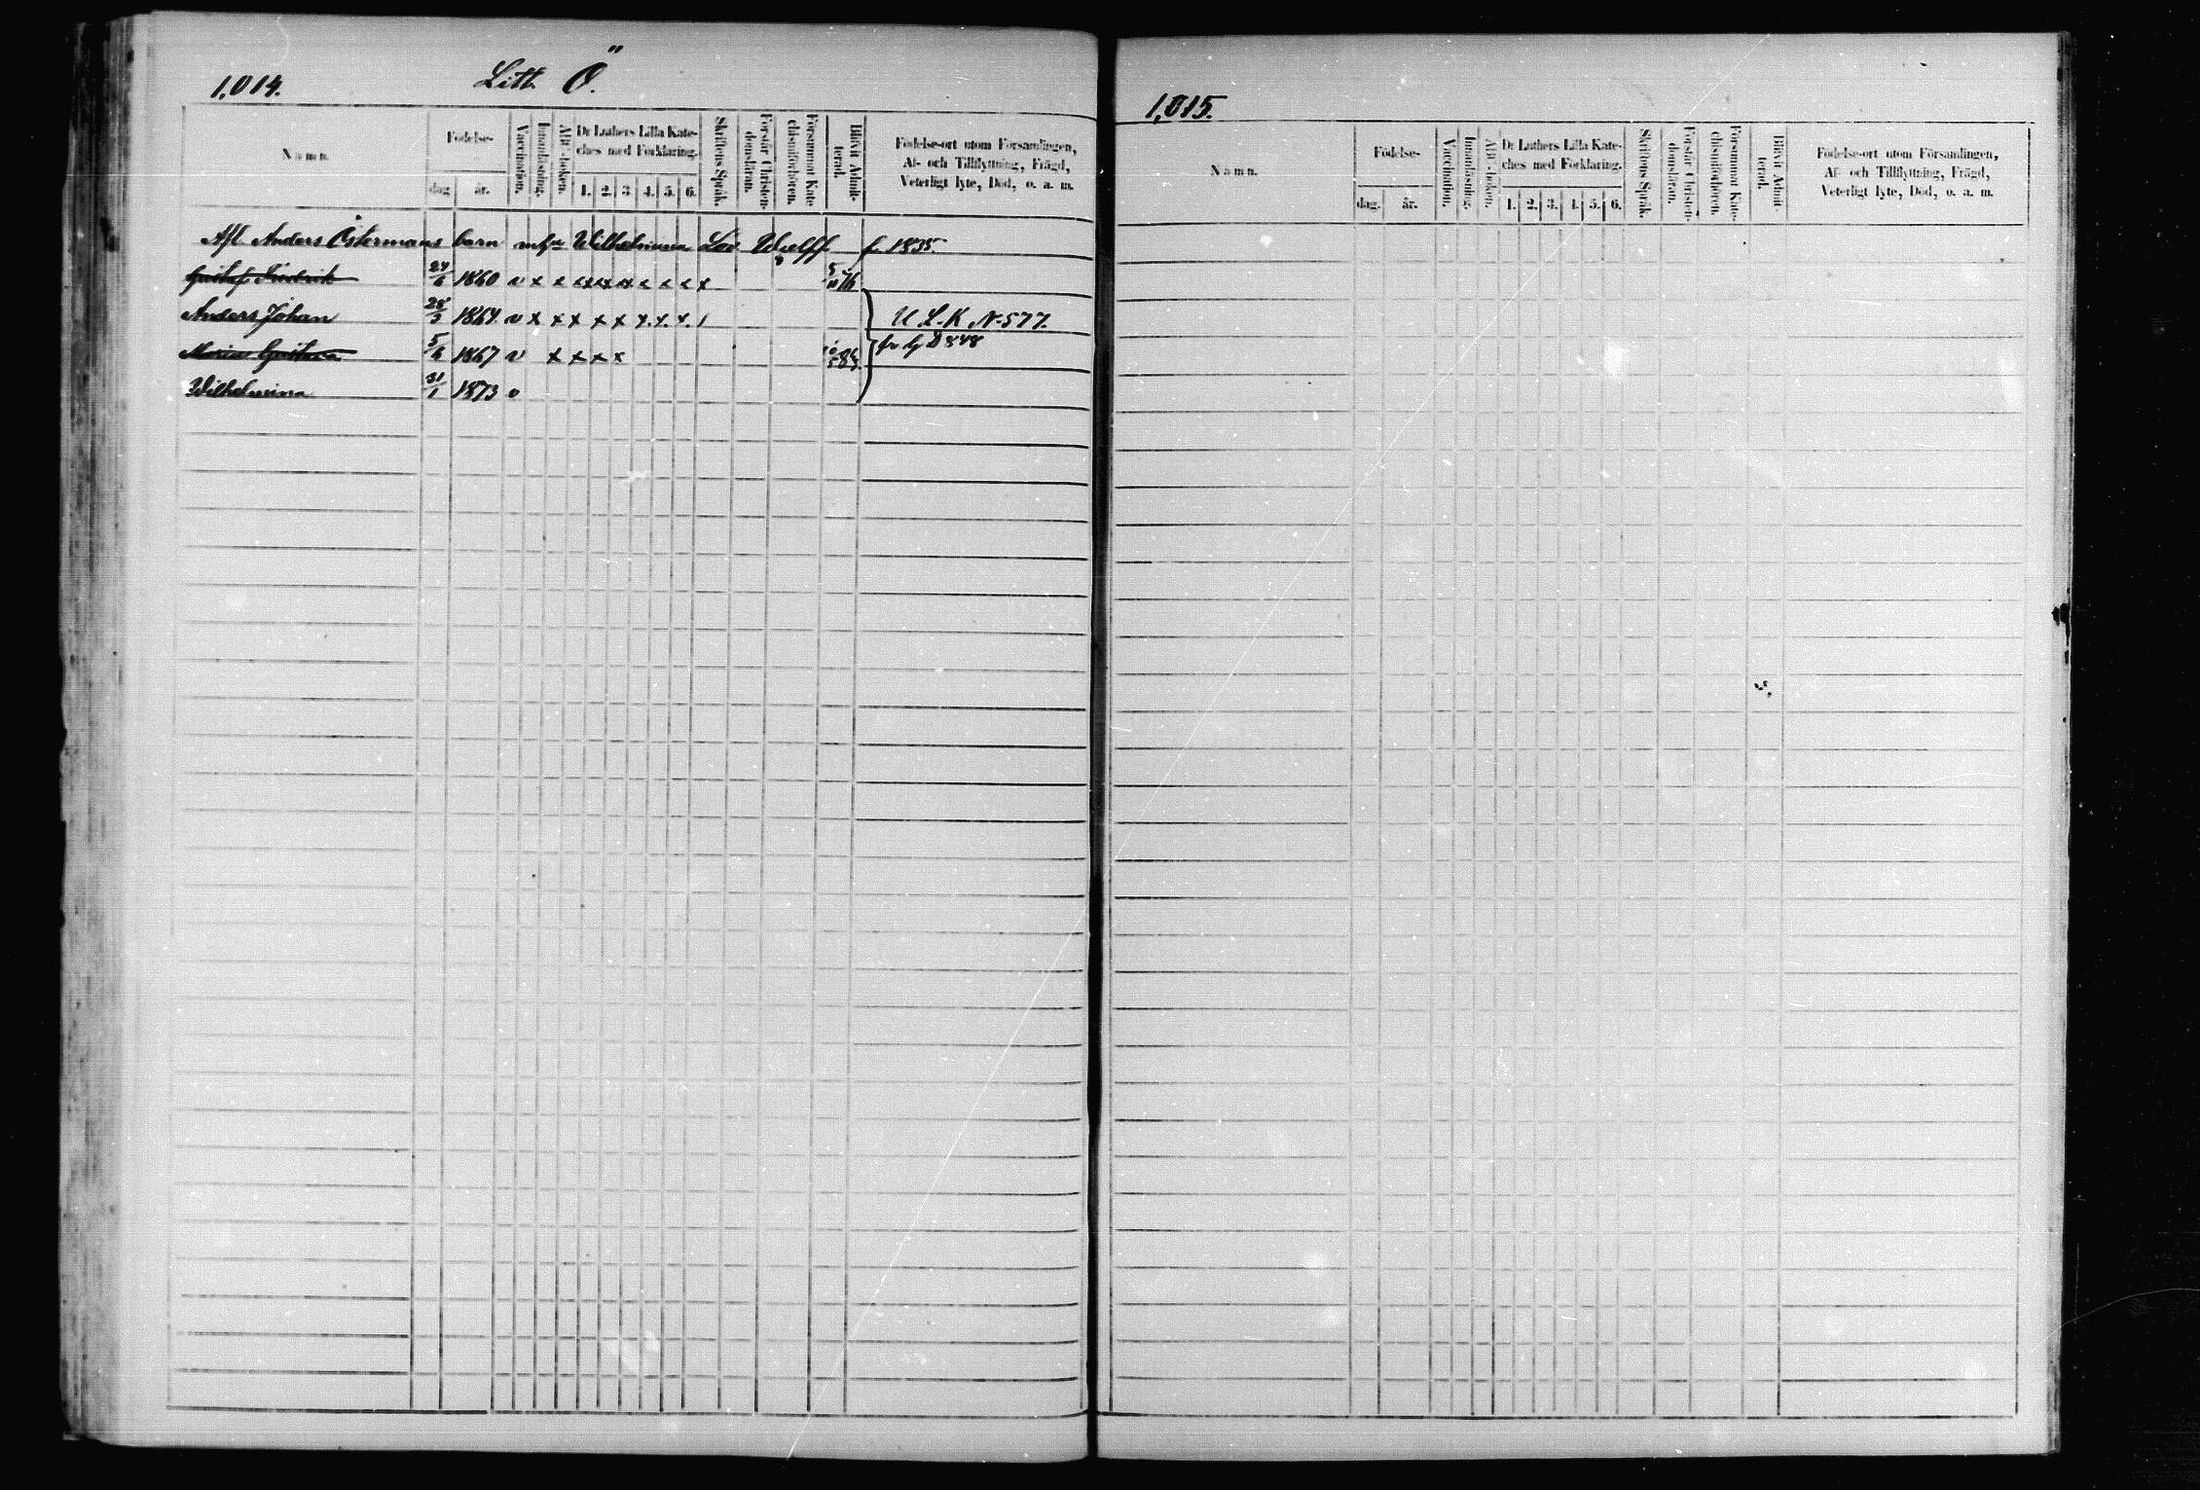 1,014.
Litt. Ö.
Namn.
Födelse-
dag
år.
Vaccination.
Innanläsning.
ABC-boken.
Dr Luthers Lilla Kate-
ches med Förklaring.
1. 2. 3 4. 5. 6.
Skriftens Språk.
Förstår Christen-
domsläran.
Försummat Kate
chismiförhören.
Blifvit Admit-
terad.
Födelse-ort utom Församlingen,
Af- och Tillflyttning, Frägd,
Veterligt lyte, Död, o. a. m.
Afl. Anders Östermans barn m hu Wilhelmina Wulff f. 1835.
Gustaf Fredrik 24/6 1860 v x x x x x x x x x x 76
Anders Johan 28/3 1864. v x x x x x x. x. x. / U L.K. N. 577.
Maria Gustava 5/6 1867 v x x x x 85. D 848
Wilhelmina 31/1 1873 v
1,015.
Namn.
Födelse-
dag.
år.
Vaccination.
Innanläsning.
ABC-boken.
Dr Luthers Lilla Kate-
ches med Förklaring.
1. 2. 3. 4. 5. 6.
Skriftens Språk.
Förstår Christen-
domsläran.
Försummat Kate-
chismiförhören.
Blifvit Admit-
terad.
Födelse-ort utom Församlingen,
Af- och Tillflyttning, Frägd,
Veterligt lyte, Död, o. a. m.